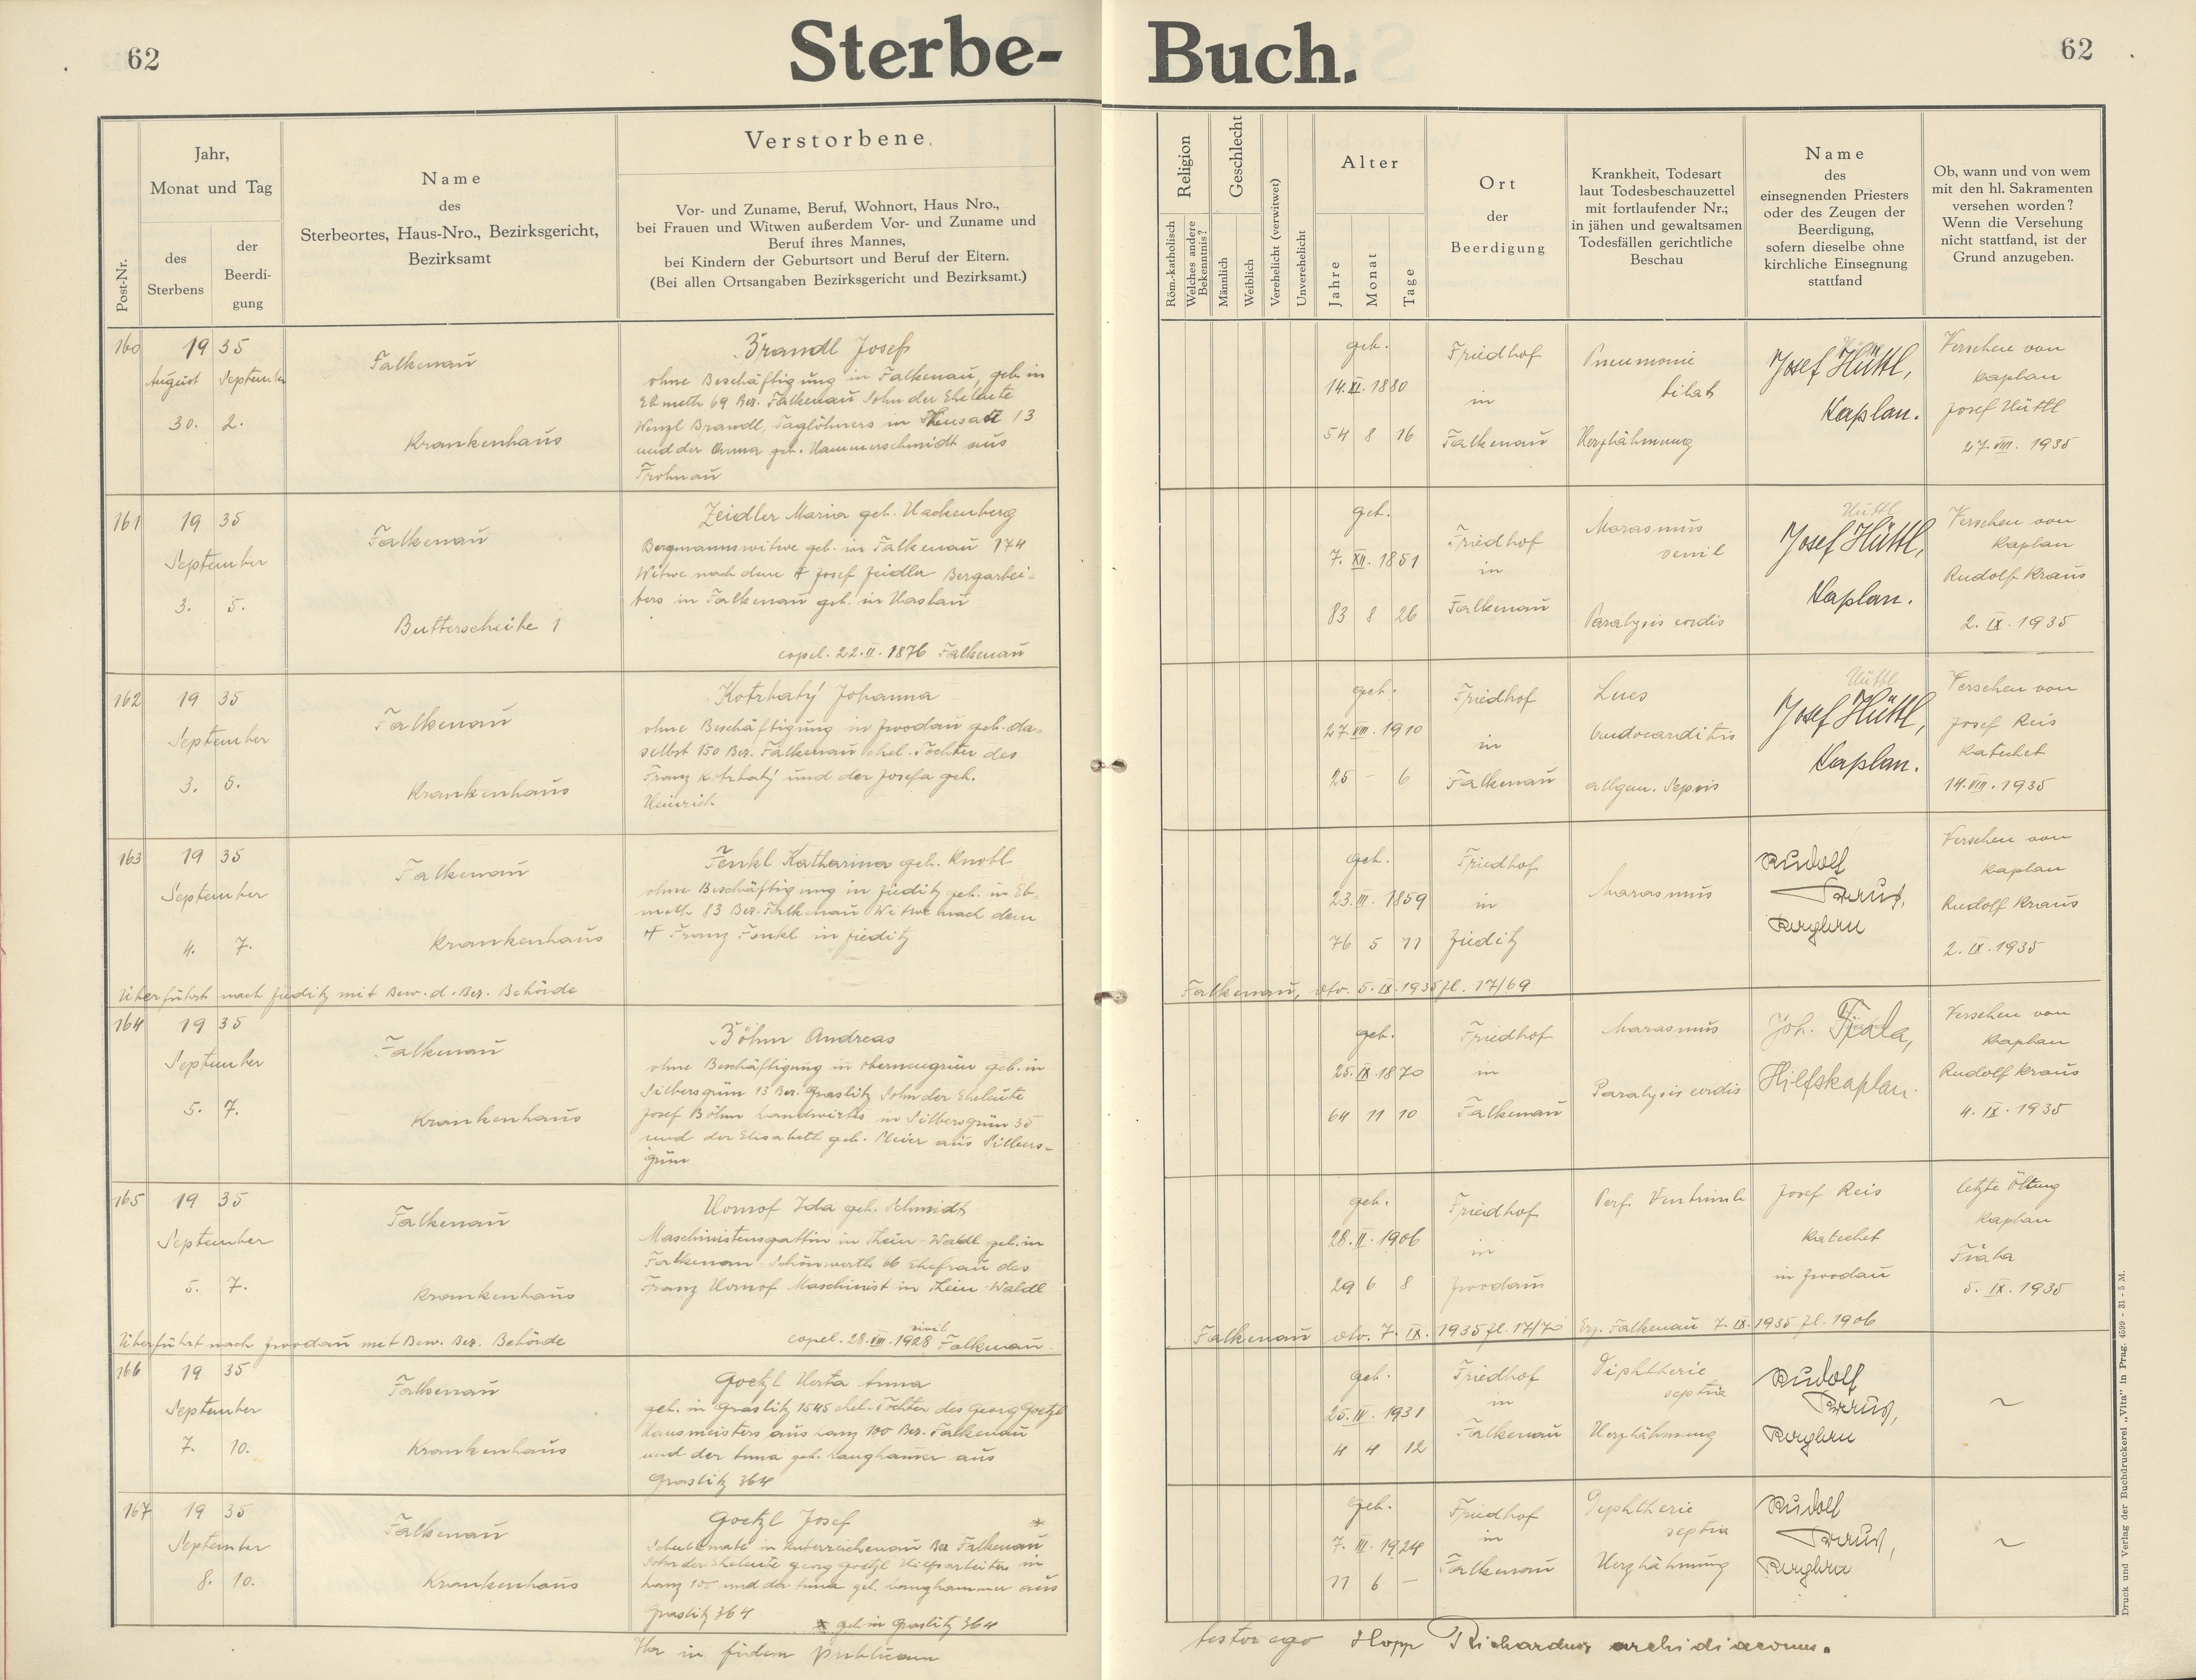 62
Sterbe-
Jahr,
Monat und Tag
Post-Nr.
des
Sterbens
der
Beerdi-
gung
Name
des
Sterbeortes, Haus-Nro., Bezirksgericht,
Bezirksamt
Verstorbene.
Vor- und Zuname, Beruf, Wohnort, Haus Nro.,
bei Frauen und Witwen außerdem Vor- und Zuname und
Beruf ihres Mannes,
bei Kindern der Geburtsort und Beruf der Eltern.
(Bei allen Ortsangaben Bezirksgericht und Bezirksamt.)
160
19 35
August September
30. 2.
Falkenau
Krankenhaus
Brandl Josef
ohne Beschäftigung in Falkenau, geb. in
Ebmeth 69 Bez. Falkenau Sohn der Eheleute
Wenzl Brandl, Taglöhners in 13
und der Anna geb. Hammerschmidt aus
Frohnau
161
19 35
September
3. 5.
Falkenau
Butterscheibe 1
Zeidler Maria geb. Hachenberg
Bergmannswitwe geb. in Falkenau 174
Witwe nach dem † Josef Zeidler Bergarbei-
ters in Falkenau geb. in Haslau
copul. 22.II.1876 Falkenau
162
19 35
September
3. 5.
Falkenau
Krankenhaus
Kotrbatý Johanna
ohne Beschäftigung in Zwodau geb. da-
selbst 150 Bez. Falkenau ehel. Tochter des
Franz Kotrbatý und der Josefa geb.
Heinrich
163
19 35
September
4. 7.
Falkenau
Krankenhaus
Fenkl Katharina geb. Knobl
ohne Beschäftigung in Zieditz geb. in Eb-
meth 83 Bez. Falkenau Witwe nach dem
† Franz Fenkl in Zieditz
Überführt nach Zieditz mit Bew. d. Bez. Behörde
164
19 35
September
5. 7.
Falkenau
Krankenhaus
Böhm Andreas
ohne Beschäftigung in Oberneugrün geb. in
Silbersgrün 13 Bez. Graslitz Sohn der Eheleute
Josef Böhm Landwirtes in Silbersgrün 35
und der Elisabeth geb. Meier aus Silbers-
grün
165
19 35
September
5. 7.
Falkenau
Krankenhaus
Hornof Ida geb. Schmidt
Maschinistensgattin in Thein-Waldl geb. in
Falkenau-Schönwerth 66 Ehefrau des
Franz Hornof Maschinist in Thein-Waldl
civil
copul. 28.VII.1928 Falkenau
Überführt nach Zwodau mit Bew. Bez. Behörde
166
19 35
September
7. 10.
Falkenau
Krankenhaus
Goetzl Herta Anna
geb. in Graslitz 1545 ehel. Tochter des Georg Goetzl
Hausmeisters aus Lanz 100 Bez. Falkenau
und der Anna geb. Langhammer aus
Graslitz 364
167
19 35
September
8. 10.
Falkenau
Krankenhaus
Goetzl Josef *
Schulknabe in Unterreichenau Bez Falkenau
Sohn der Eheleute Georg Goetzl Hilfsarbeiters in
Lanz 100 und der Anna geb. Langhammer aus
Graslitz 364
* geb in Graslitz 364
in fidem publicam
Buch.
62
Religion
Röm.-katholisch
Welches andere
Bekenntnis?
Geschlecht
Männlich
Weiblich
Verehelicht (verwitwet)
Unverehelicht
Alter
Jahre
Monat
Tage
Ort
der
Beerdigung
Krankheit, Todesart
laut Todesbeschauzettel
mit fortlaufender Nr.;
in jähen und gewaltsamen
Todesfällen gerichtliche
Beschau
Name
des
einsegnenden Priesters
oder des Zeugen der
Beerdigung,
sofern dieselbe ohne
kirchliche Einsegnung
stattfand
Ob, wann und von wem
mit den hl. Sakramenten
versehen worden?
Wenn die Versehung
nicht stattfand, ist der
Grund anzugeben.
geb.
14.XI.1880
54 8 16
Friedhof
in
Falkenau
Pneumonie
bilat
Herzlähmung
Josef Hüttl,
Kaplan.
Versehen von
Kaplan
Josef Hüttl
27.VIII.1935
geb.
7.XII.1851
83 8 26
Friedhof
in
Falkenau
Marasmus
senil
Paralysis cordis
Hüttl
Josef Hüttl,
Kaplan.
Versehen von
Kaplan
Rudolf Kraus
2.IX.1935
geb.
27.VIII.1910
25 – 6
Friedhof
in
Falkenau
Lues
Endocarditis
allgem. Sepsis
Hüttl
Josef Hüttl,
Kaplan.
Versehen von
Josef Reis
Katechet
14.VIII.1935
geb.
23.III.1859
76 5 11
Friedhof
in
Zieditz
Marasmus
Rudolf
Kraus,
Kaplan
Versehen von
Kaplan
Rudolf Kraus
2.IX.1935
Falkenau, dto. 5.IX.1935 Zl. 17/69
geb.
25.IX.1870
64 11 10
Friedhof
in
Falkenau
Marasmus
Paralysis cordis
Joh. Fiala,
Hilfskaplan.
Versehen von
Kaplan
Rudolf Kraus
4.IX.1935
geb.
28.II.1906
29 6 8
Friedhof
in
Zwodau
Perf. Ventricule
Josef Reis
Katechet
in Zwodau
letzte Ölung
Kaplan
5.IX.1935
Falkenau dto. 7.IX.1935 Zl. 17/70 Falkenau 7.IX.1935 Zl. 1906
geb.
25.IV.1931
4 4 12
Friedhof
in
Falkenau
Diphtherie
septica
Herzlähmung
Rudolf
Kraus,
Kaplan
~
geb.
7.III.1924
11 6 –
Friedhof
in
Falkenau
Diphtherie
septica
Herzlähmung
Rudolf
Kraus,
Kaplan
~
testor ego Hopp Richardus archidiaconus.
Druck und Verlag der Buchdruckerei „Vita" in Prag. 4599 - 31 - 5 M.